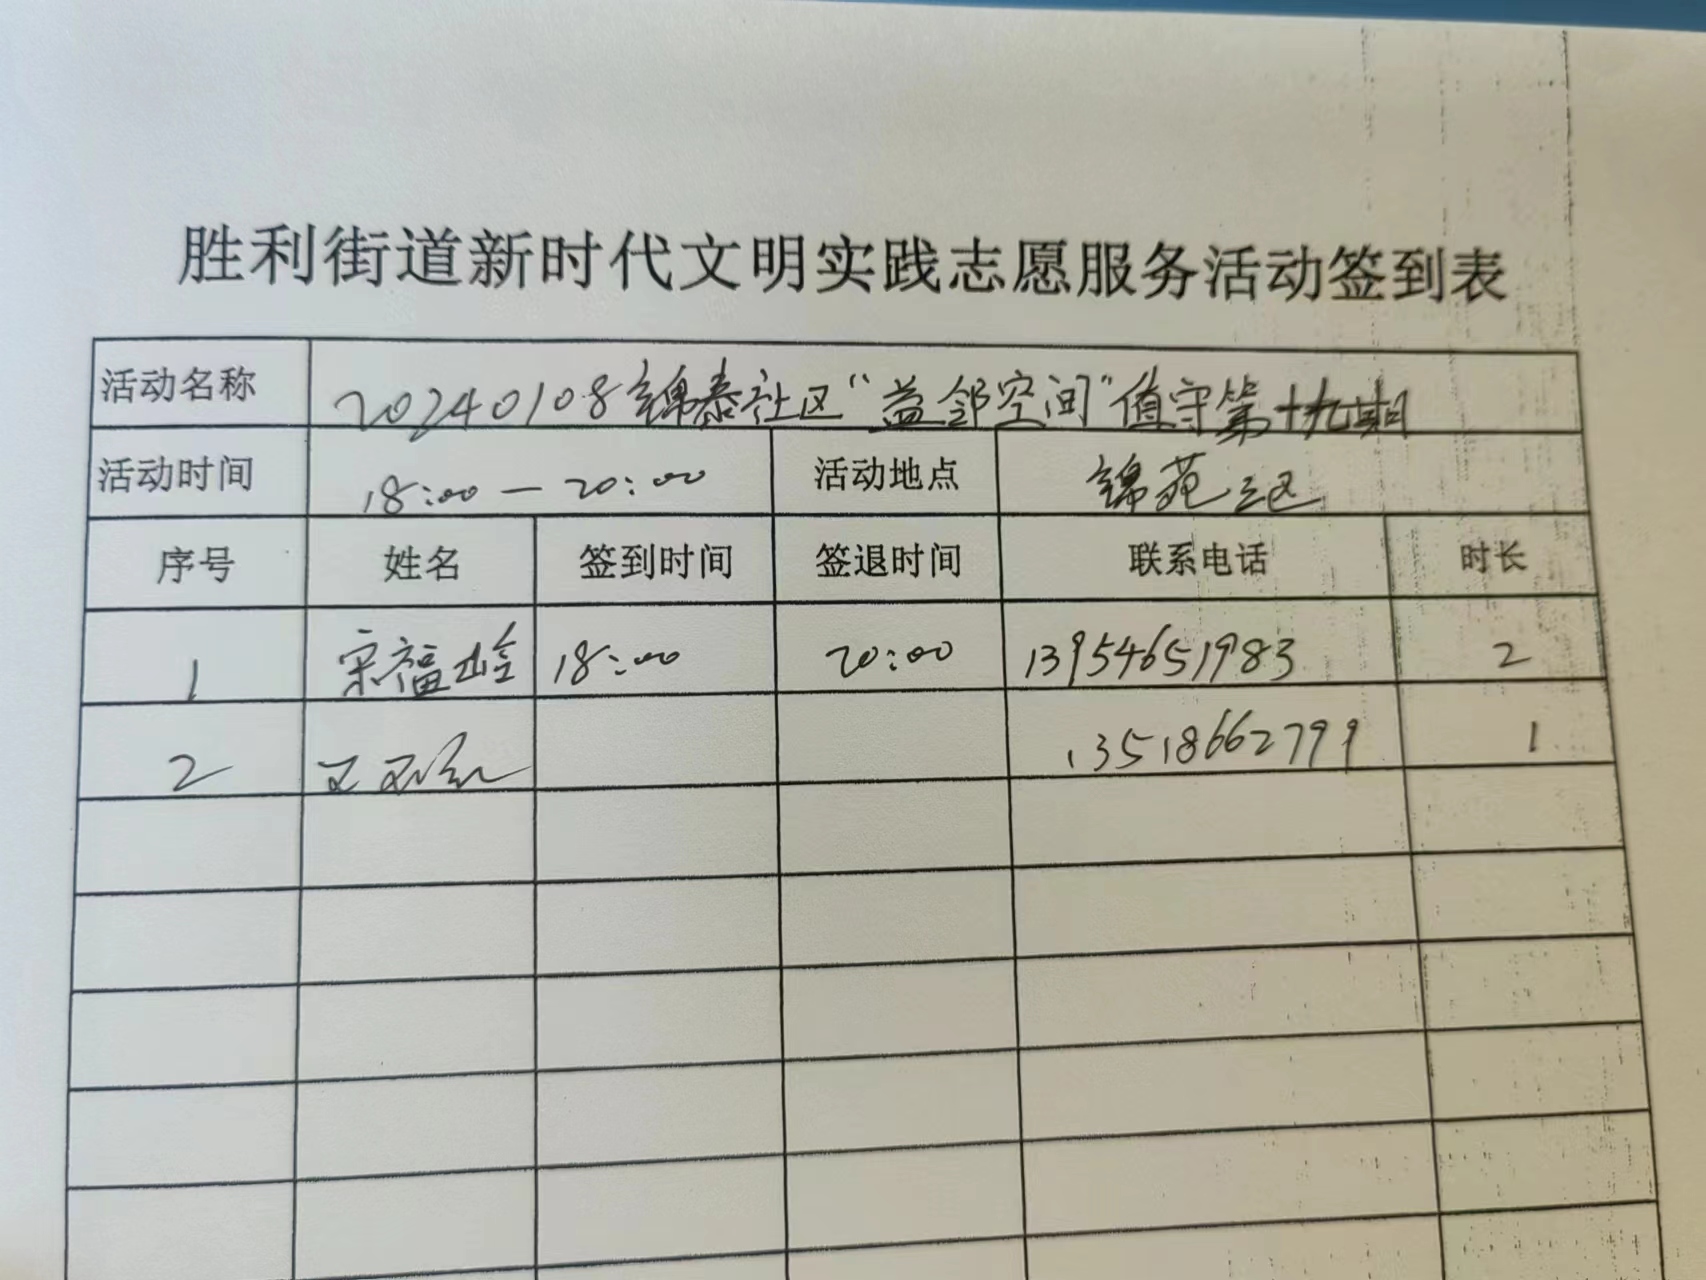 胜利街道新时代文明实践志愿服务活动签到表
活动名称 20240108锦泰社区“益邻空间”值守第十九期
活动时间 18:00—20:00 活动地点 锦苑三区
序号 姓名 签到时间 签退时间 联系电话 时长
1 宋福 18:00 20:00 13954651983 2
2 13518662799 1